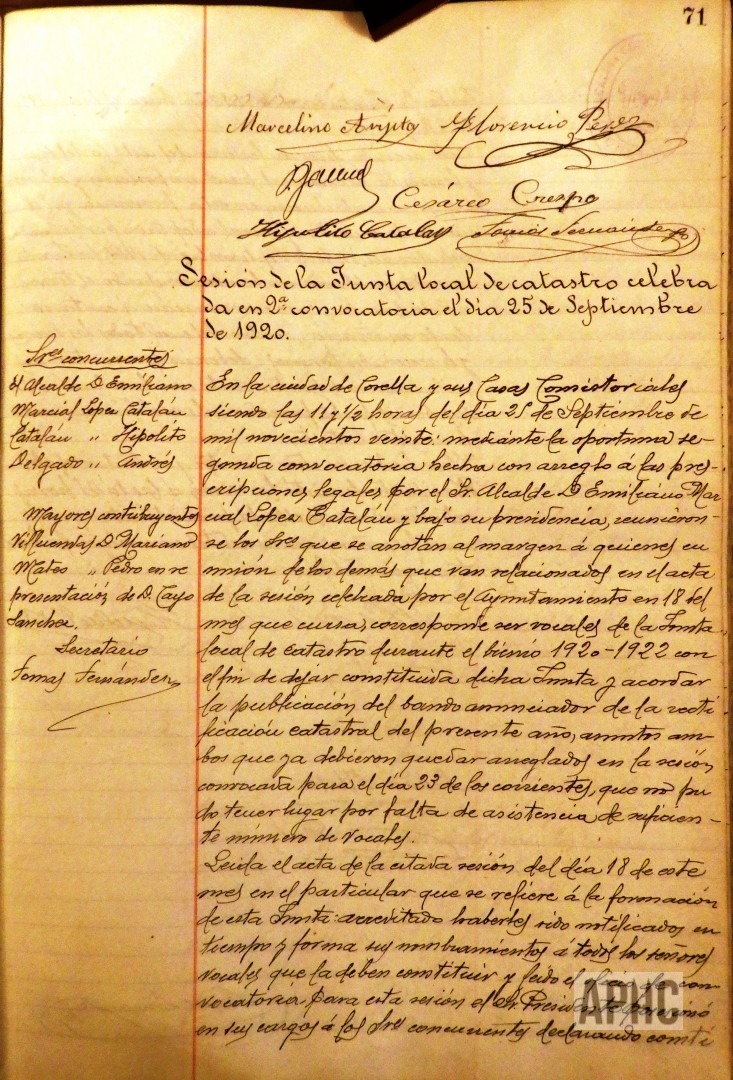 71
Marcelino Florencio Perez
Cesáreo Crespo
Hipolito Catalan Tomás Fernandez
Sesión de la Junta local de catastro celebra
da en 2ª convocatoria el día 25 de Septiembre
de 1920.
Sres concurrentes
El Alcalde D Emiliano
Marcial Lopez Catalán
Catalán " Hipolito
Delgado " Andrés
Mayores contribuyentes
Villuendas D Mariano
Mateo " Pedro en re
presentación de D. Cayo
Sanchez.
Secretario
Tomas Fernández
En la ciudad de Corella y sus Casas Consistoriales
siendo las 11 y 1/2 horas del día 25 de Septiembre de
mil novecientos veinte: mediante la oportuna se-
gunda convocatoria hecha con arreglo á las pres-
cripciones legales por el Sr. Alcalde D Emiliano Mar
cial Lopez Catalán y bajo su presidencia, reunieron-
se los Sres que se anotan al margen á quienes en
unión de los demás que van relacionados en el acta
de la sesión celebrada por el Ayuntamiento en 18 del
mes que cursa, corresponde ser vocales de la Junta
local de catastro durante el bienio 1920-1922 con
el fin de dejar constituida dicha Junta y acordar
la publicación del bando anunciador de la recti
ficación catastral del presente año, asuntos am-
bos que ya debieron quedar arreglados en la sesión
convocada para el día 23 de los corrientes, que no pu
do tener lugar por falta de asistencia de suficien-
te número de vocales.
Leida el acta de la citada sesión del día 18 de este
mes en el particular que se refiere á la formación
de esta Junta: acreditado haberles sido notificados en
tiempo y forma sus nombramientos á todos los señores
vocales que la deben constituir y leido el de con-
vocatoria para esta sesión el Sr. Presidente posesionó
en sus cargos á los Sres concurrentes declarando consti
APMC